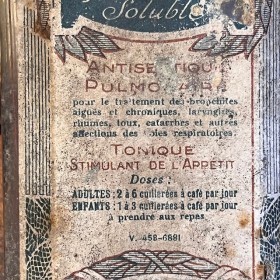 Soluble
ANTISEPTIQUE
PULMONAIRE
pour le traitement des bronchites
aiguës et chroniques, laryngites,
rhumes, toux, catarrhes et autres
affections des voies respiratoires.
TONIQUE
STIMULANT DE L'APPÉTIT
Doses :
ADULTES : 2 à 6 cuillerées à café par jour
ENFANTS : 1 à 3 cuillerées à café par jour
à prendre aux repas
V. 458-6881